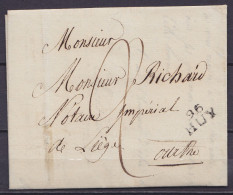 Monsieur
Monsieur Richard
Notaire Impérial
de Liège
Ourthe
2
96
HUY